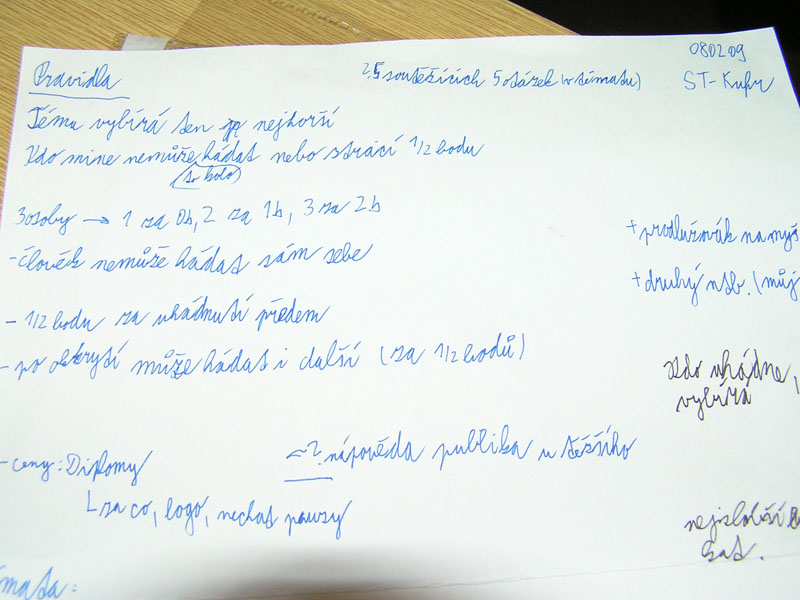 080209
Pravidla
25 soutěžících 5 otázek (v tématu)
ST-Kufr
Tému vybírá ten nejhorší
Kdo mine nemůže hádat nebo ztrácí 1/2 bodu
(to kolo)
3 osoby → 1 za 0b, 2 za 1b, 3 za 2b
+ prodlužovák na myš
- člověk nemůže hádat sám sebe
+ druhý ntb. (můj
- 1/2 bodu za uhádnutí předem
- po odkrytí může hádat i další (za 1/2 bodů)
Kdo uhádne,
vybírá
- ceny: Diplomy
? nápověda publika u těžšího
za co, logo, nechat pauzy